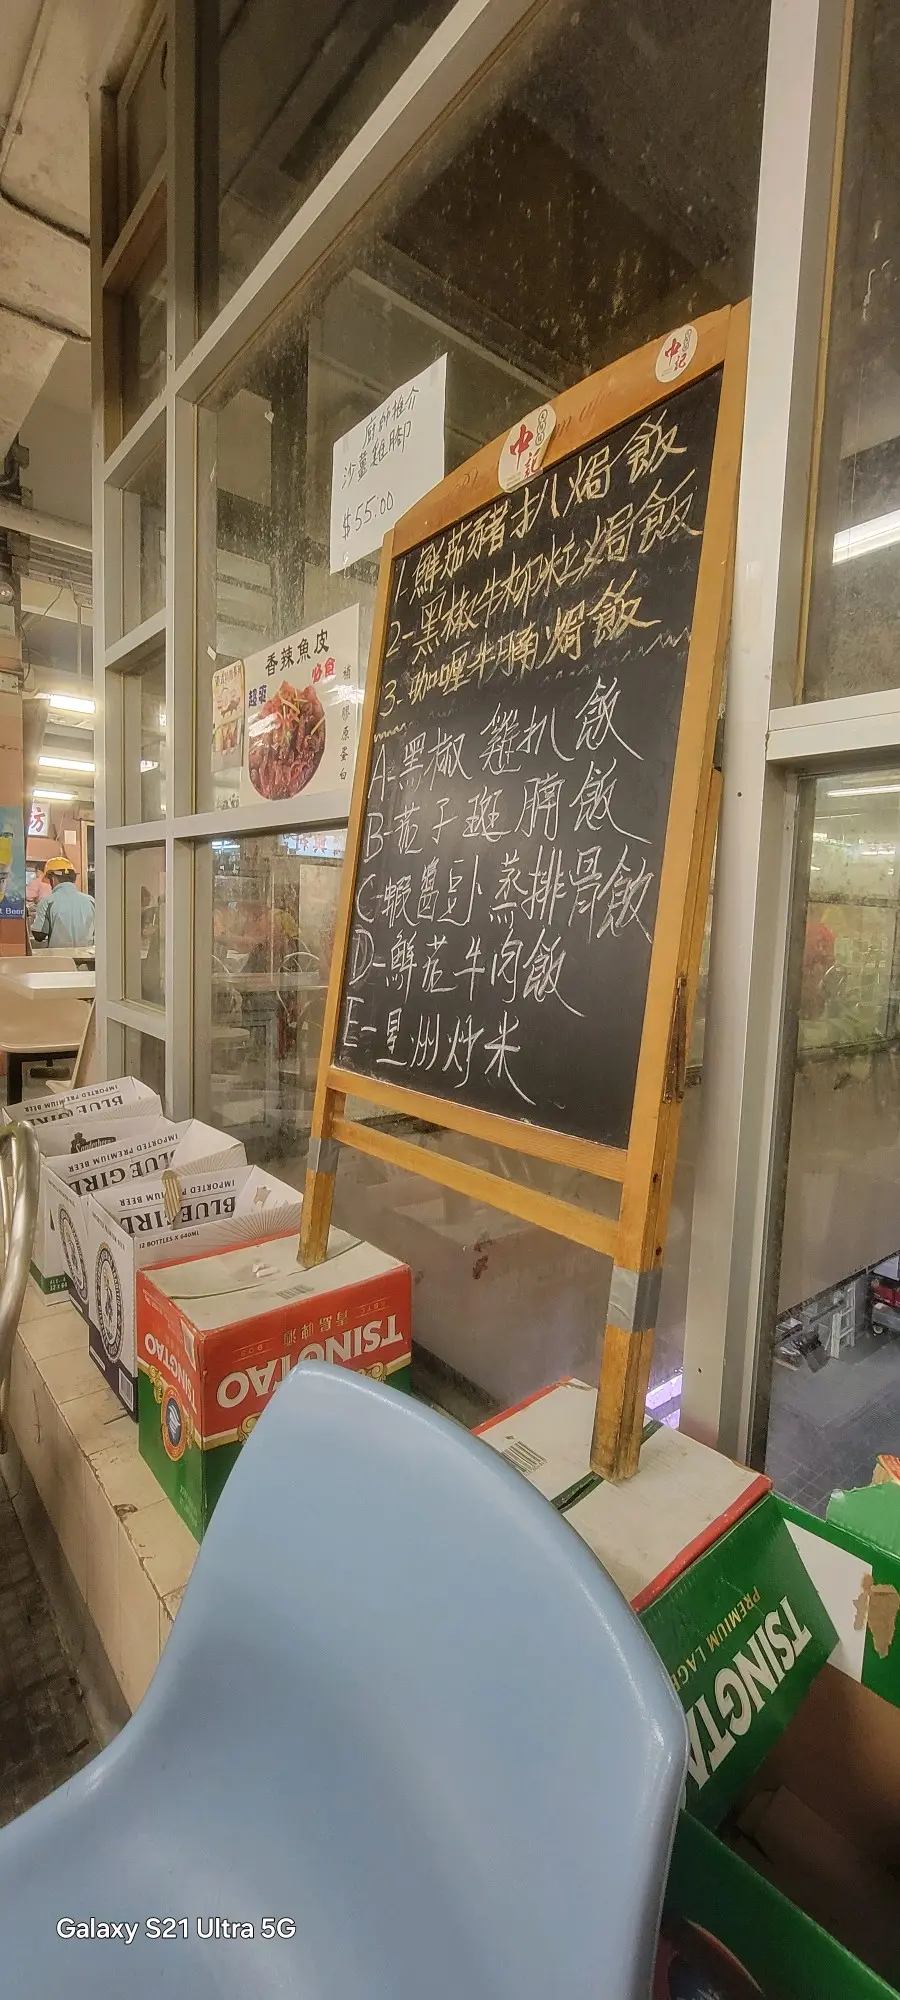 廚師推介
沙薑雞腳
$55.00
香辣魚皮
超爽
必食
補膠原蛋白
中記
中記
1-鮮茄豬扒焗飯
2-黑椒牛柳粒焗飯
3-咖哩牛腩焗飯
A-黑椒雞扒飯
B-茄子斑腩飯
C-蝦醬豆卜蒸排骨飯
D-鮮茄牛肉飯
E-星州炒米
IMPORTED PREMIUM BEER
BLUE GIRL
IMPORTED PREMIUM BEER
BLUE GIRL
IMPORTED PREMIUM BEER
BLUE GIRL
12 BOTTLES X 640ML
TSINGTAO
青島啤酒
TSINGTAO
TSINGTAO
PREMIUM LAGER
Galaxy S21 Ultra 5G